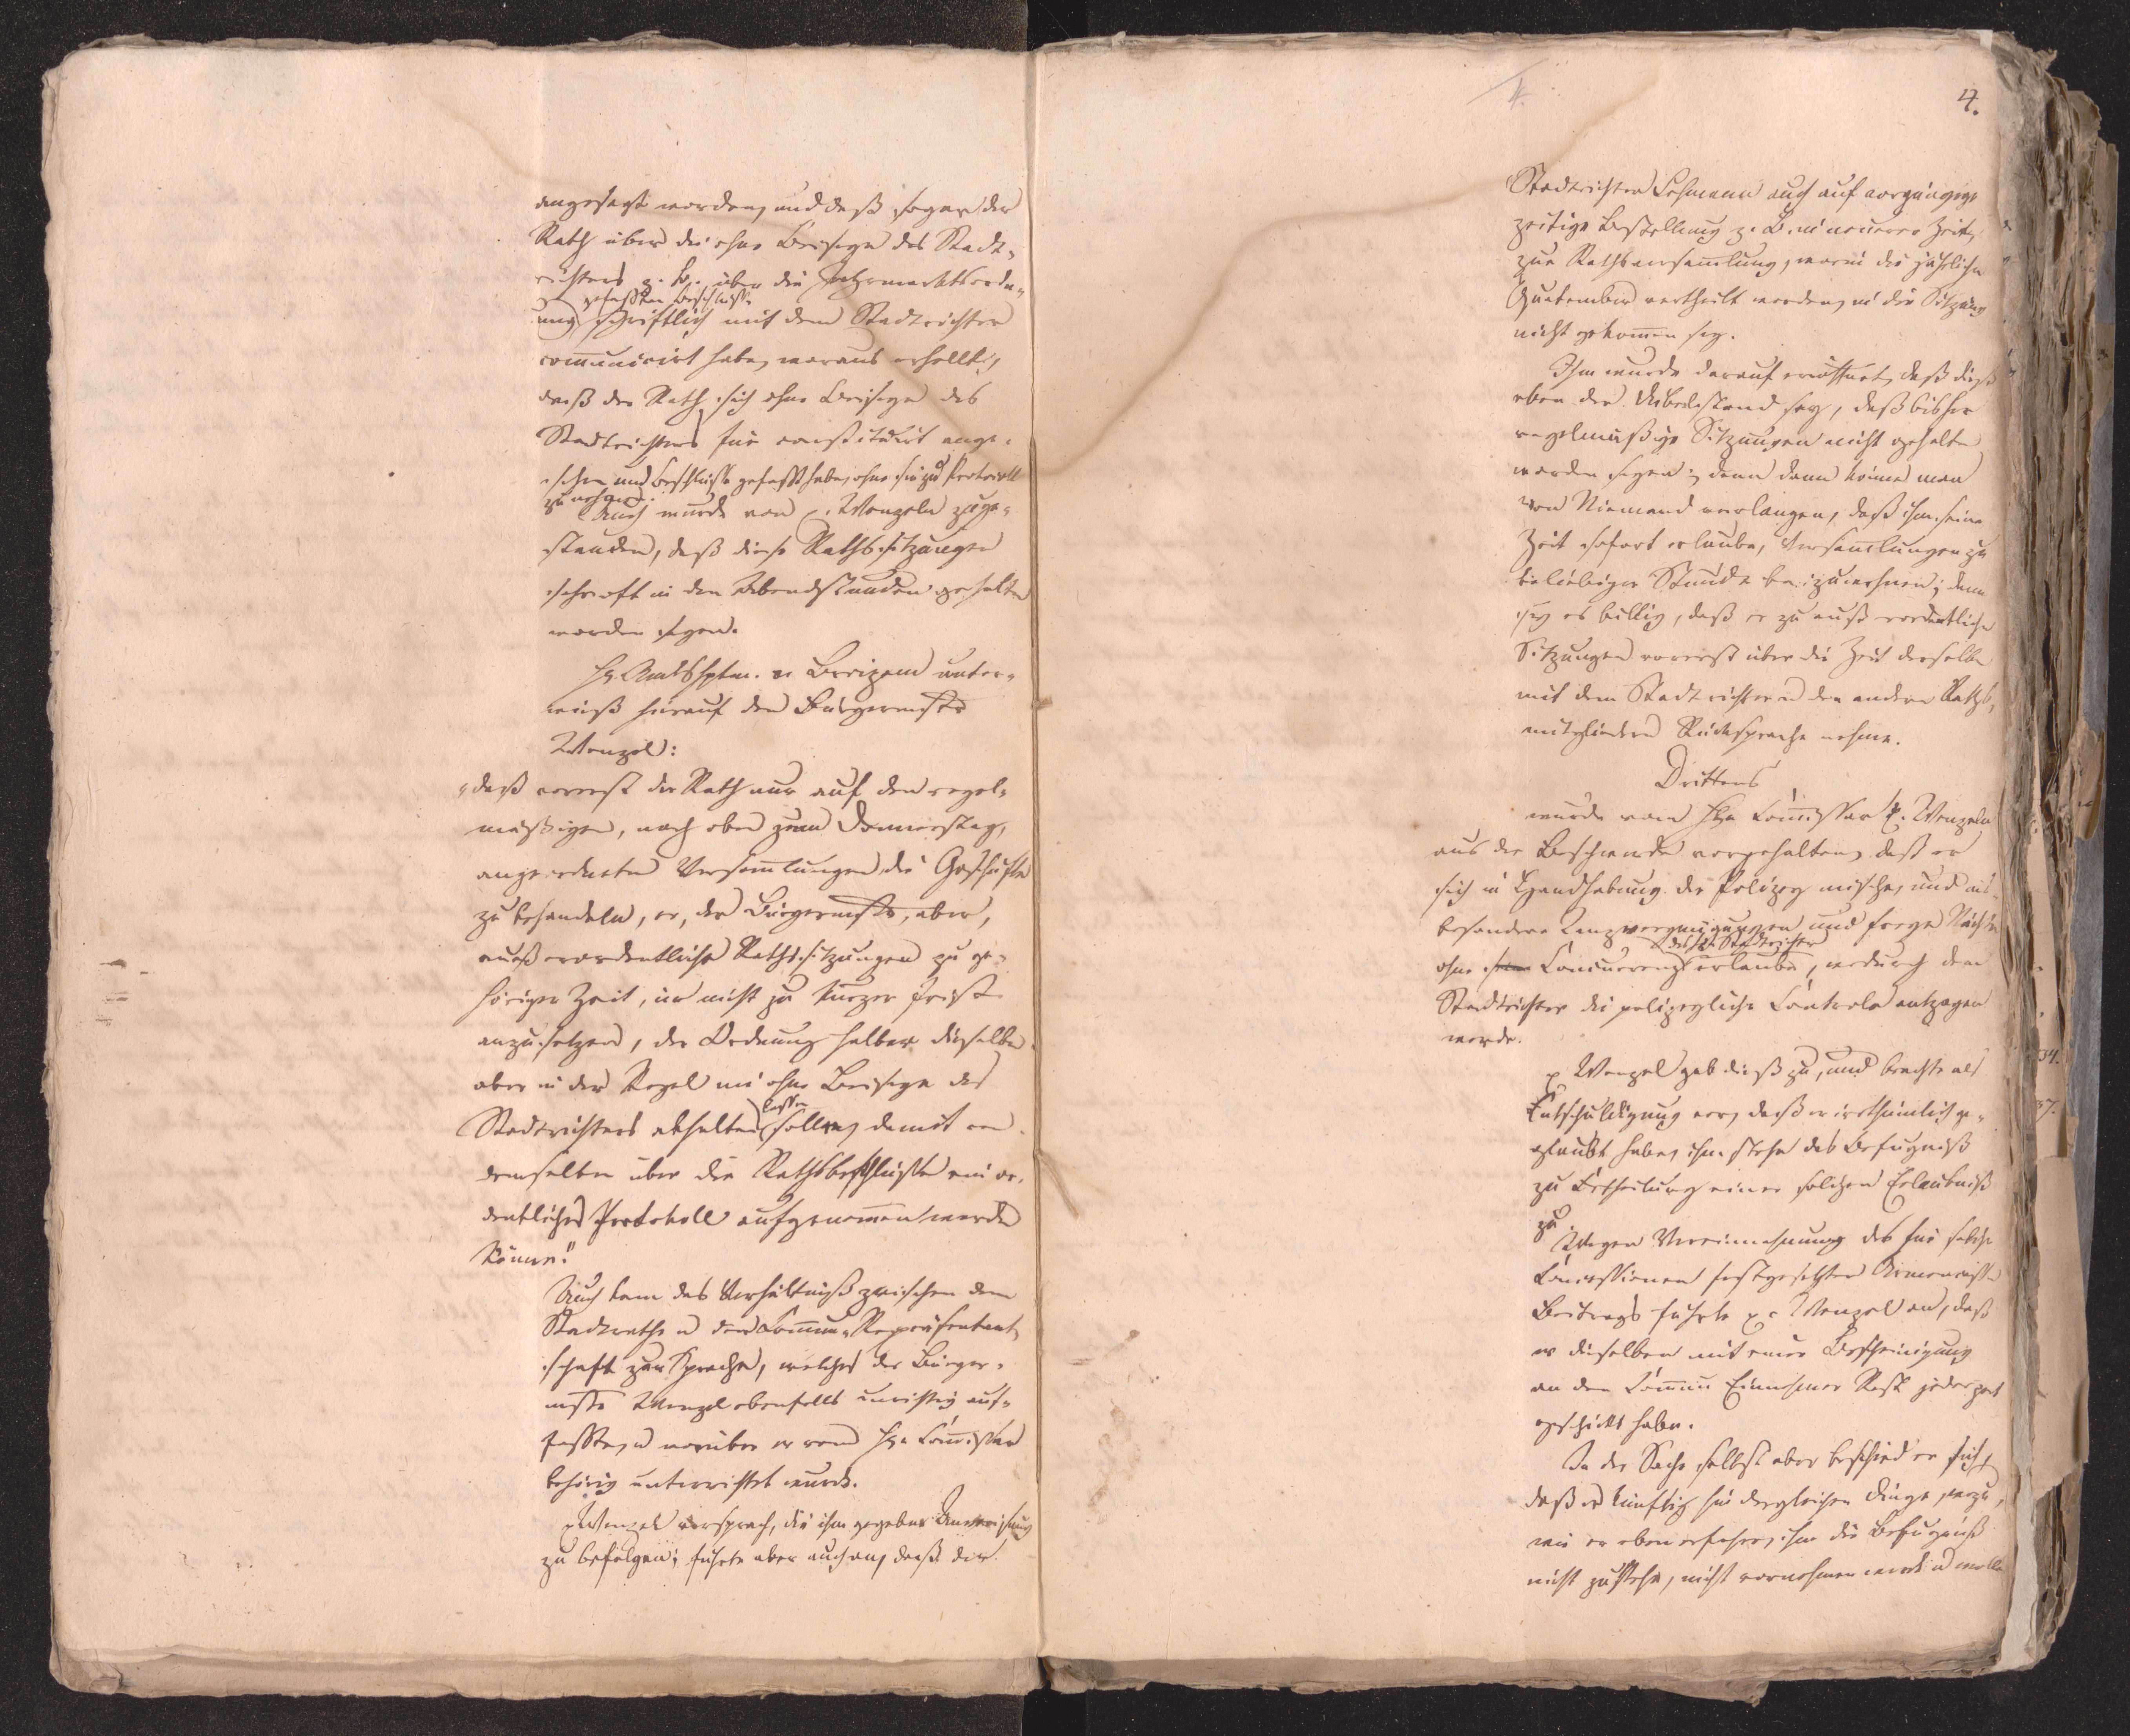 angesagt worden, und daß sogar der
Rath über die ohne Beiseyn des Stadt-
richters z. B. über die Jahrmarktsordn-
gefaßten Beschlüsse
ung schriftlich mit dem Stadtrichter
com̄unicirt habe, woraus erhelle,
daß der Rath sich ohne Beiseyn des
Stadtrichters für constituirt ange-
sehen und Beschlüsse gefaßt habe, ohne sie zu Protocoll
zu nehmen.
Auch wurde von p. Wenzeln zuge-
standen, daß diese Rathssitzungen
sehr oft in den Abendstunden gehalten
worden seyen.
H. Amtshptm. v. unter-
wieß hierauf den Bürgermstr
Wenzel:
„daß vorerst der Rath nur auf den regel-
mäßigen, nach oben zum Donnerstag,
angeordneten Versam̄lungen die Geschäfte
zu behandeln, er, der Bürgermstr, aber,
außerordentliche Rathssitzungen zu ge-
höriger Zeit, nur nicht zu kurzer Frist
anzusetzen, der Ordnung halber dieselben
aber in der Regel nie ohne Beiseyn des
lassen
Stadtrichters abhalten solle, damit von
demselben über die Rathsbeschlüsse ein or-
dentliches Protokoll aufgenom̄en werden
könne."
Auch kam das Verhältniß zwischen dem
Stadtrathe u der Com̄un-Repräsentant
schaft zur Sprache, welches der Bürger-
mstr Wenzel ebenfalls unrichtig auf-
faßte, u worüber er vom H. Com̄issar
behörig unterrichtet wurde.
p Wenzel versprach, die ihm gegebene Anweisung
zu befolgen; führte aber auch an, daß der
4.
4.
Stadtrichter Lehmann auch auf vorgängige
zeitige Bestellung z. B. in neuerer Zeit,
zur Rathsversam̄lung, worin die jährlichen
Quatember vertheilt worden, in die Sitzung
nicht gekom̄en sey.
Ihm wurde darauf eröffnet, daß dieß
eben der Uibelstand sey, daß bisher
regelmäßige Sitzungen nicht gehalten
worden seyen; denn dann könne man
von Niemand verlangen, daß ihm seine
Zeit sofort erlaube, Versam̄lungen zu
beliebiger Stunde beizuwohnen; denn
sey es billig, daß er zu außerordentlichen
Sitzungen vorerst über die Zeit derselben
mit dem Stadtrichter u den andern Raths-
mitgliedern Rücksprache nehme.
Drittens
wurde vom Hrn Com̄issar p. Wenzeln
aus der Beschwerde vorgehalten, daß er
sich in Handhabung der Polizey mische, und ins-
besondere Tanzvergnügungen und freye Nächte
des H. Stadtrichter
ohne Concurrenz erlaube, wodurch dem
Stadtrichter die polizeyliche Controle entzogen
werde.
p. Wenzel gab dieß zu, und brachte als
Entschuldigung vor, daß er irrthümlich ge-
glaubt habe, ihm stehe das Befugniß
zu Ertheilung einer solchen Erlaubniß
zu
Wegen Vereinnahmung des für solche
Concessionen festgesetzten
Beitrags führte p. Wenzel an, daß
er dieselben mit einer Bescheinigung
an den Com̄un Einnehmer Rost jederzeit
geschickt habe.
In der Sache selbst aber beschied er sich,
daß er künftig hin dergleichen Dinge, wozu,
wie er eben erfahren, ihm die Befugniß
nicht zustehe, nicht vornehmen werde u wolle